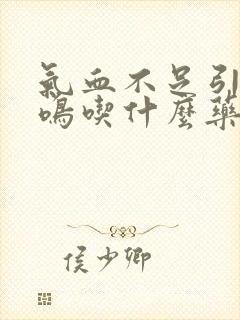 氣血不足引
鳴喫什麼藥
侯少卿